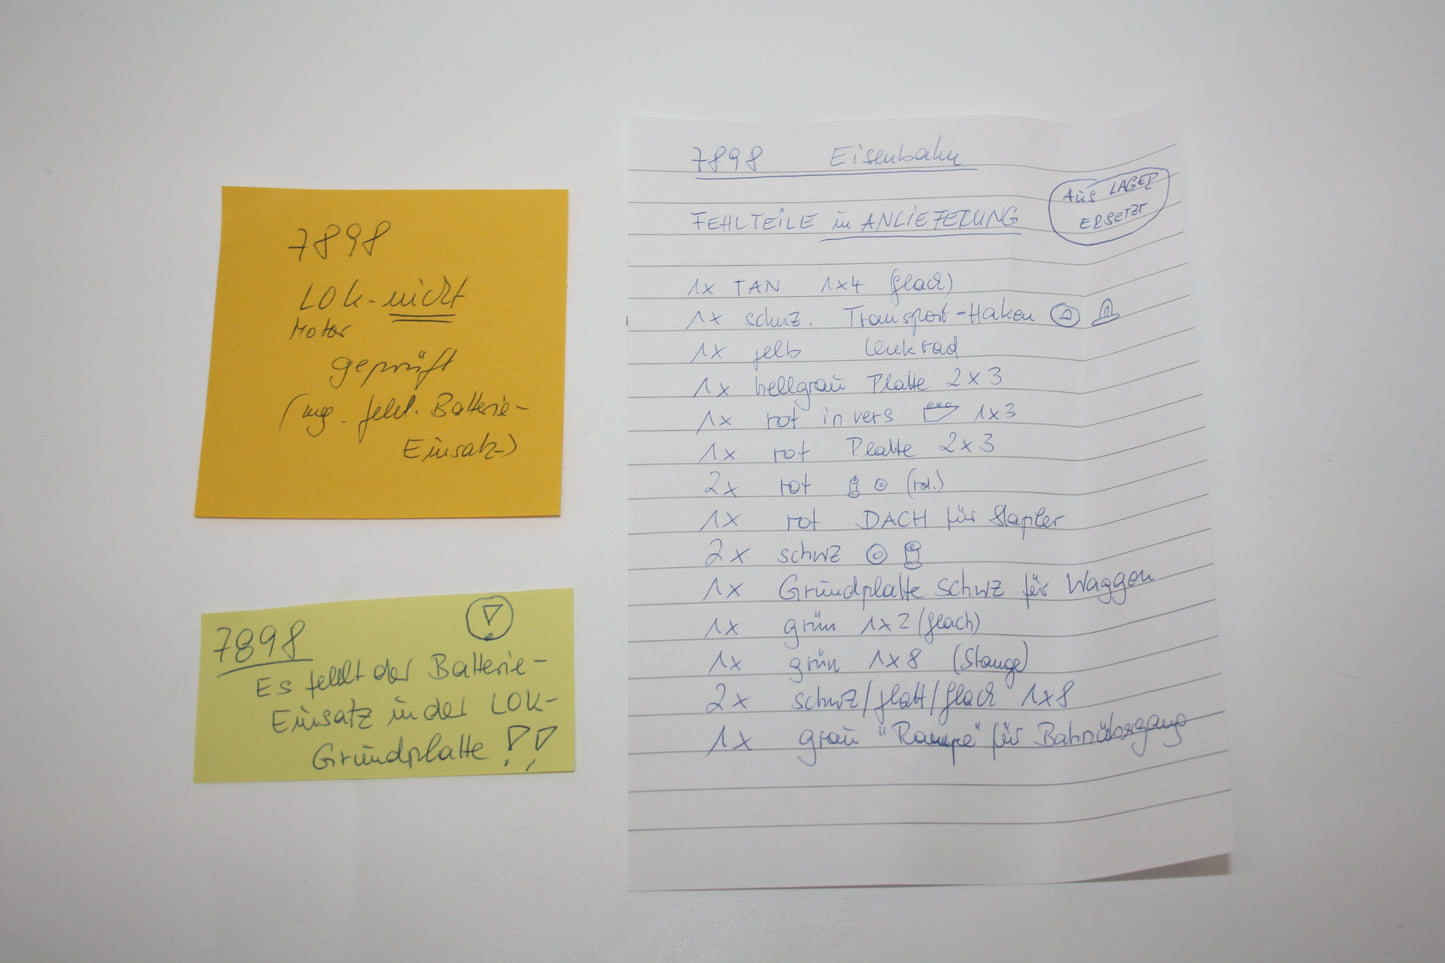 7898
LOK-nicht
Motor
geprüft
(wg. fehl. Batterie-
Einsatz)
7898
Es fehlt der Batterie-
Einsatz in der LOK-
Grundplatte !!
7898 Eisenbahn
FEHLTEILE in ANLIEFERUNG
AUS LAGER
ERSETZT
1x TAN 1x4 (flach)
1x schwz. Transport-Haken
1x gelb Lenkrad
1x hellgrau Platte 2x3
1x rot invers 1x3
1x rot Platte 2x3
2x rot
1x rot DACH für Stapler
2x schwz
1x Grundplatte schwz für Waggon
1x grün 1x2 (flach)
1x grün 1x8 (Stange)
2x schwz/glatt/flach 1x8
1x grau "Rampe" für Bahnübergang